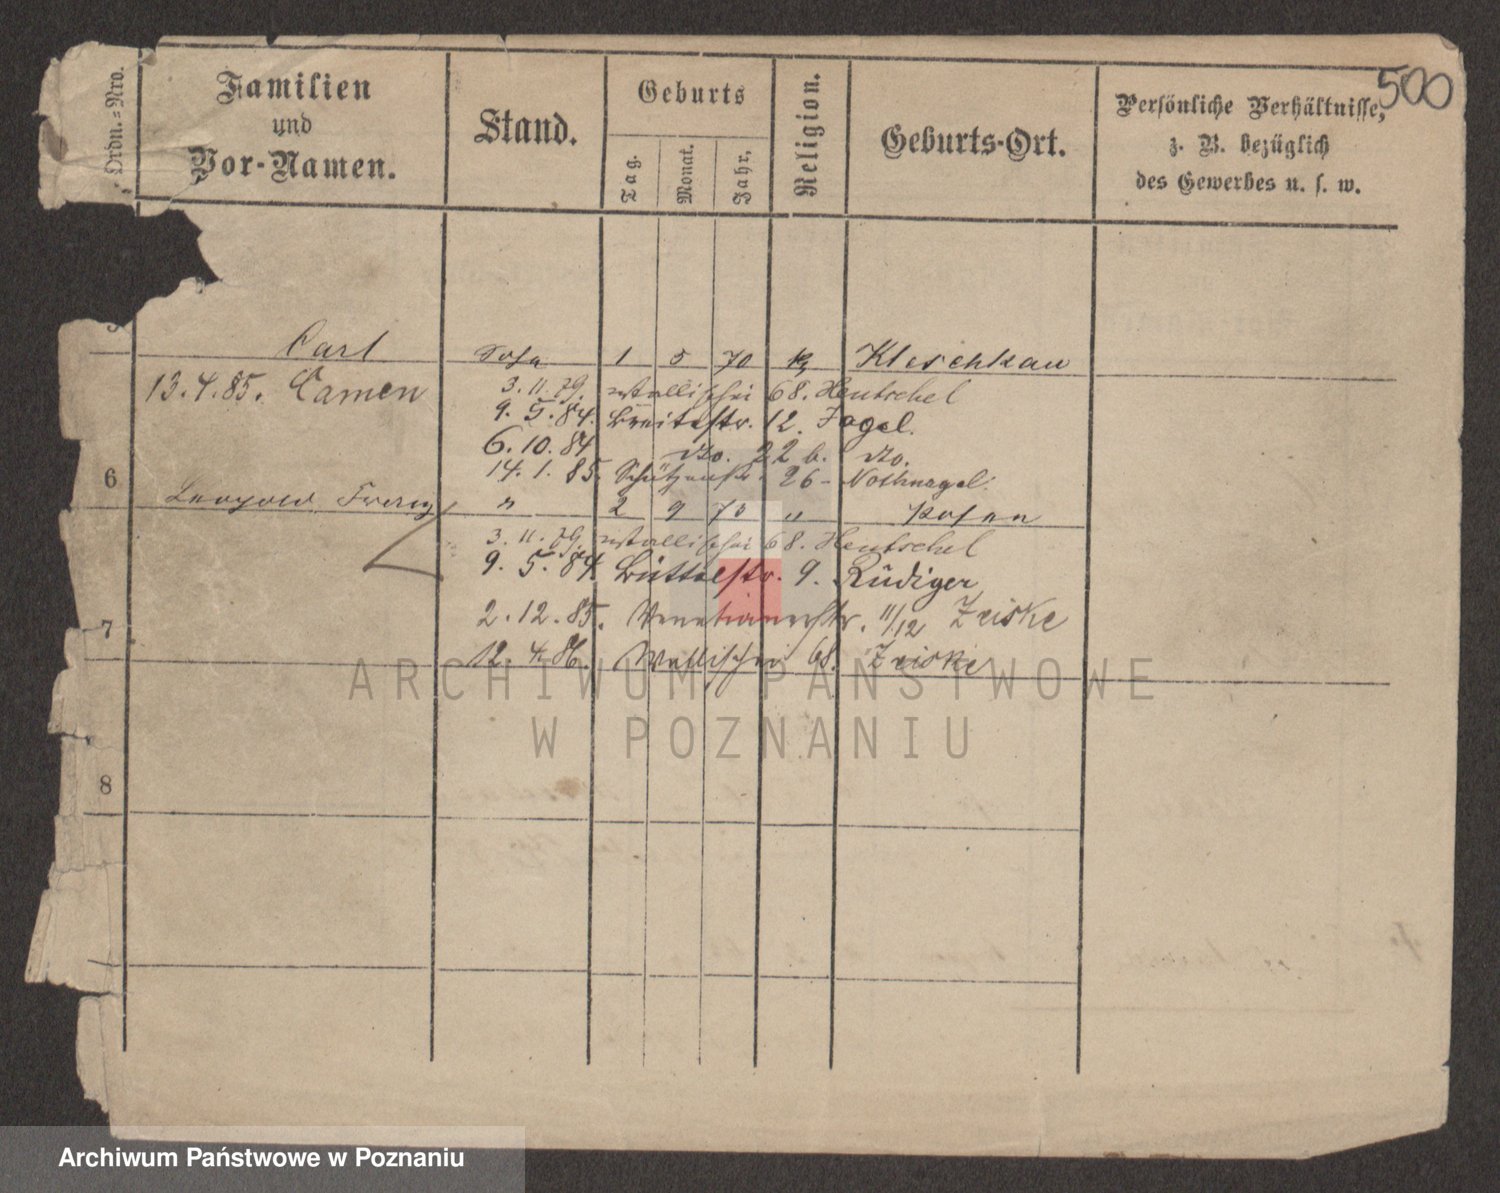 500
Ordn.=Nro.
Familien
und
Vor-Namen.
Stand.
Geburts
Tag.
Monat.
Jahr,
Religion.
Geburts-Ort.
Persönliche Verhältnisse,
z. B. bezüglich
des Gewerbes u. s. w.
Carl Sohn 1 5 70 K Kleschkau
13.4.85. Camen 3.11.79. Wallischei 68. Hentschel
9.5.84. Breitestr. 12. Jagel.
6.10.84 do. 22 b. do.
14.1.85. Schützenstr. 26 - Nothnagel.
6
Leopold Franz " 2 9 " Posen
3.11.79. Wallischei 68. Hentschel
9.5.84 Büttelstr. 9. Rüdiger
2.12.85. Venetianerstr. 11/12 Zeiske
7
12.4.86. Wallischei 68. Zeiske
8
ARCHIWUM PAŃSTWOWE
W POZNANIU
Archiwum Państwowe w Poznaniu